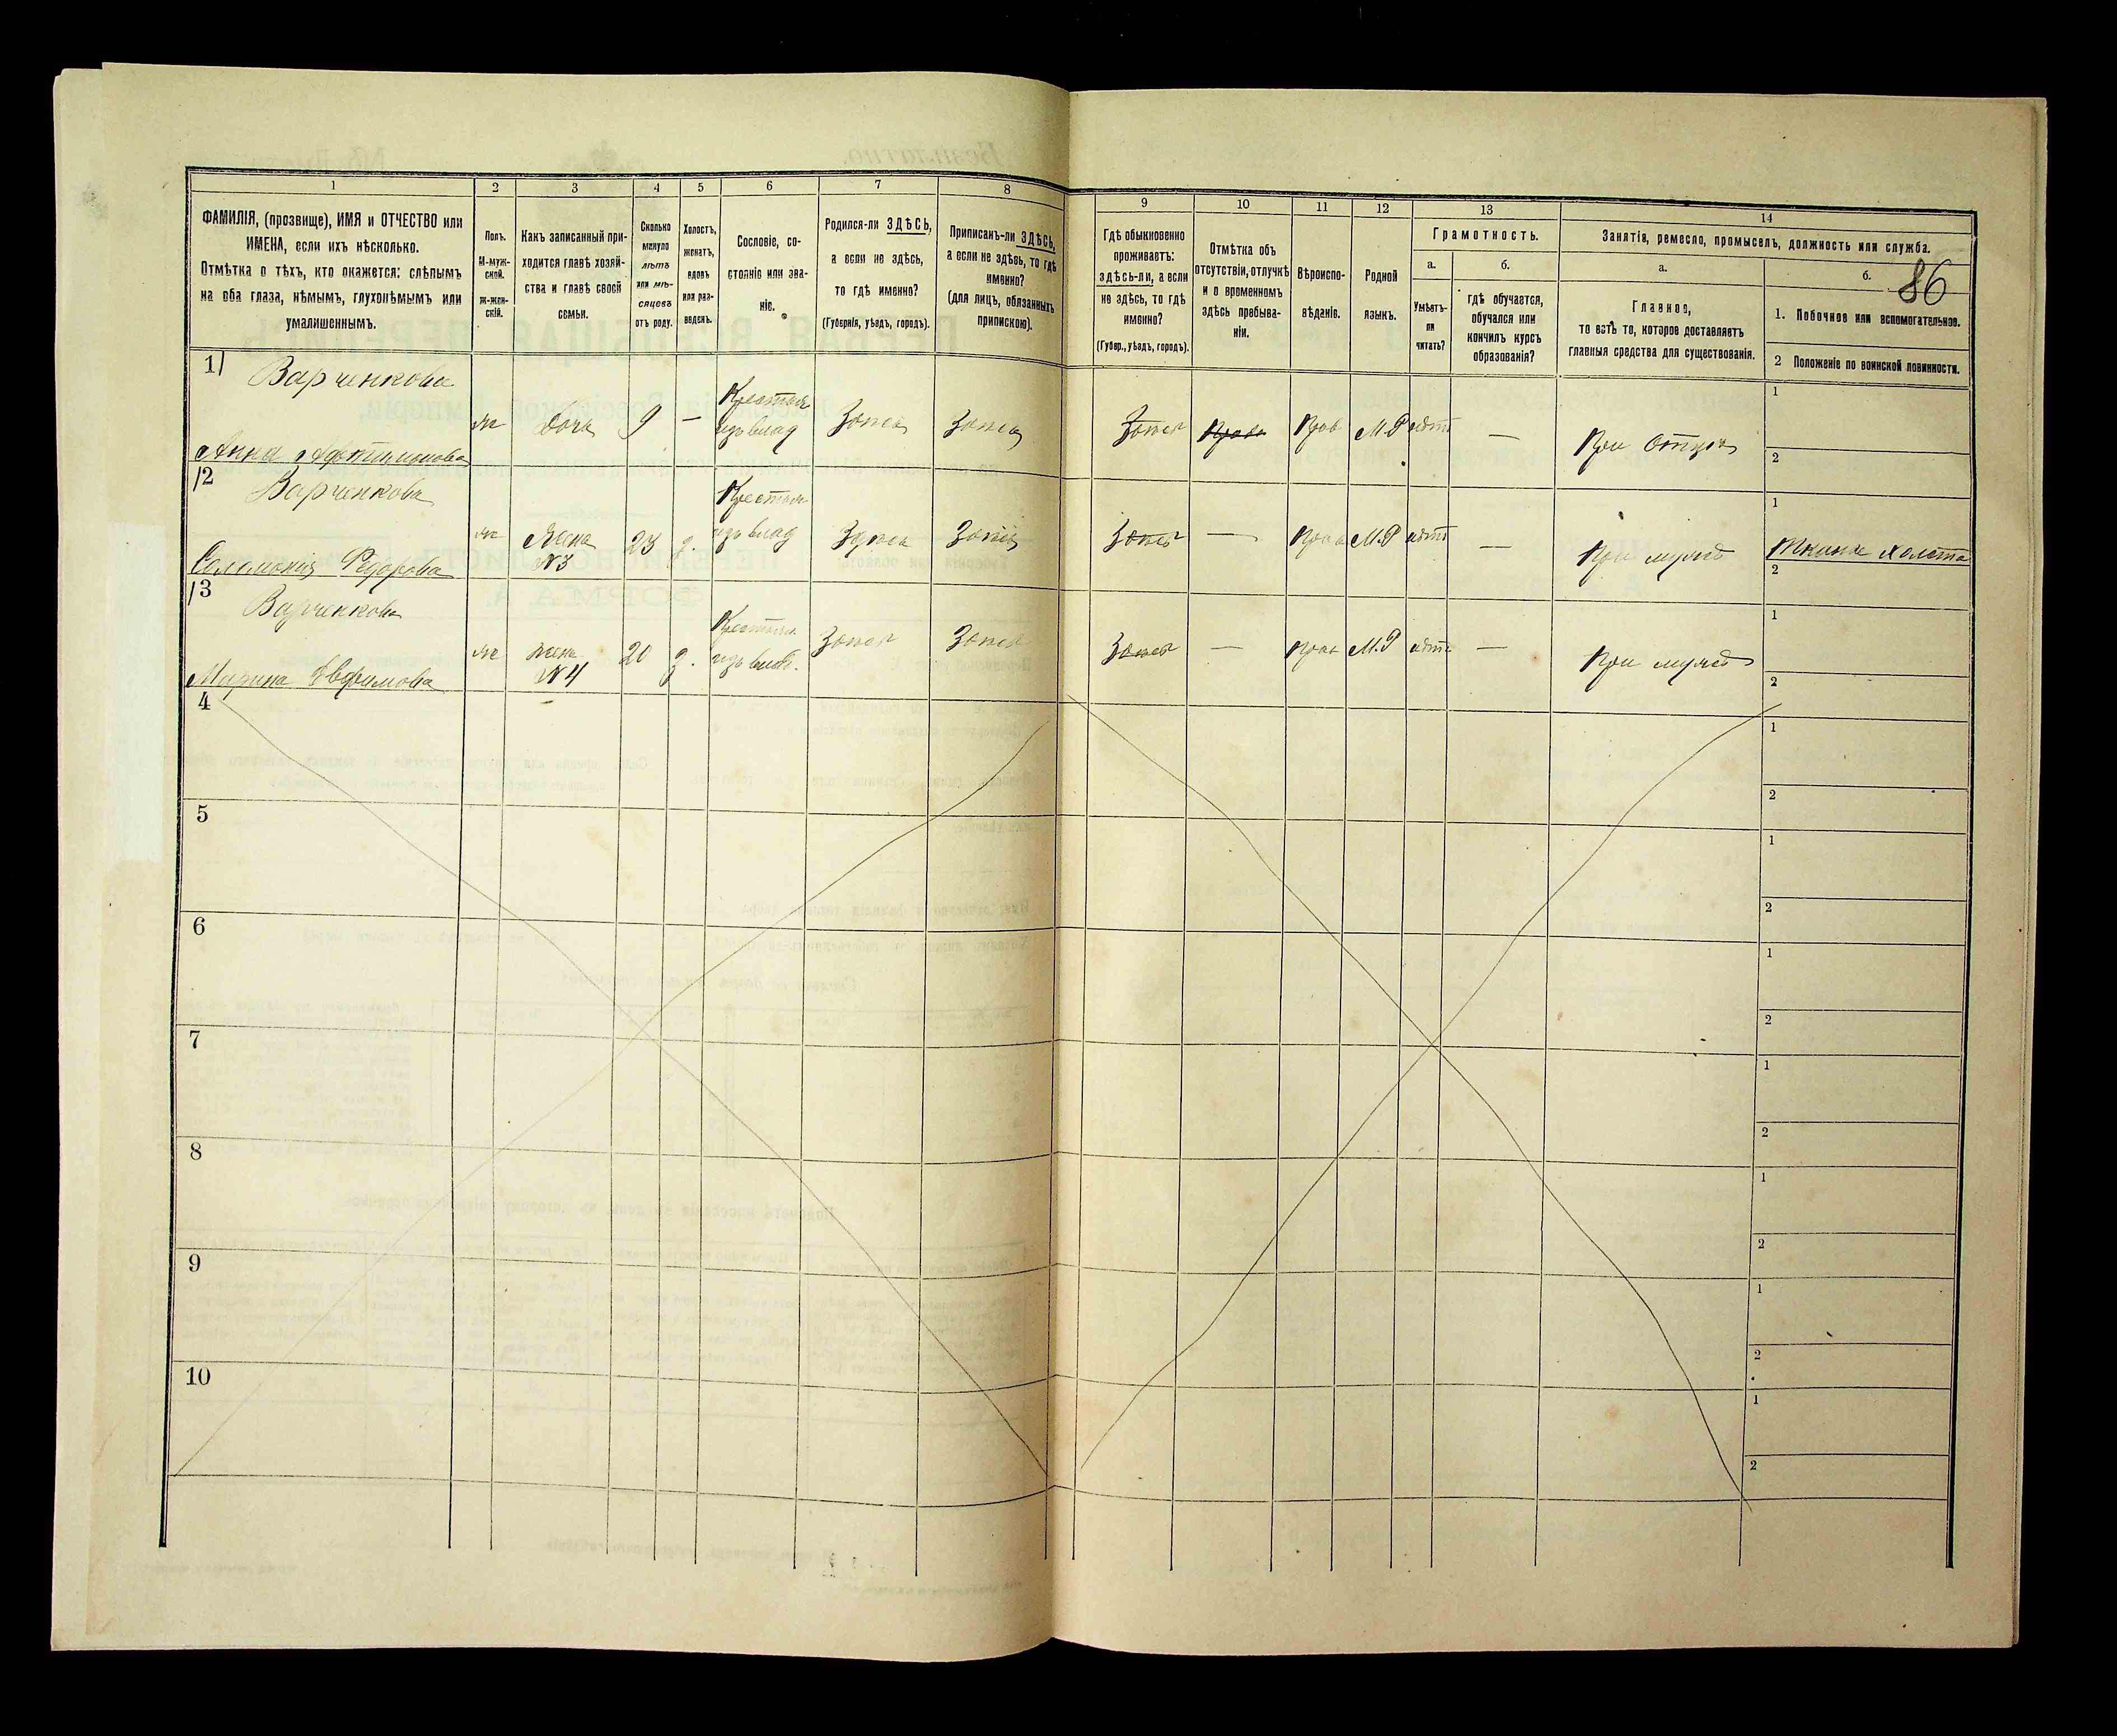 1
2
3
4
5
6
7
8
ФАМИЛІЯ, (прозвище), ИМЯ и ОТЧЕСТВО или
ИМЕНА, если ихъ нѣсколько.
Отмѣтка о тѣхъ, кто окажется: слѣпымъ
на оба глаза, нѣмымъ, глухонѣмымъ или
умалишеннымъ.
Полъ.
М-муж-
ской.
ж-жен-
скій.
Какъ записанный при-
ходится главѣ хозяй-
ства и главѣ своей
семьи.
Сколько
минуло
лѣтъ
или мѣ-
сяцевъ
отъ роду.
Холостъ,
женатъ,
вдовъ
или раз-
веденъ.
Сословіе, со-
стояніе или зва-
ніе.
Родился-ли ЗДѢСЬ,
а если не здѣсь,
то гдѣ именно?
(Губернія, уѣздъ, городъ).
Приписанъ-ли ЗДѢСЬ,
а если не здѣсь, то гдѣ
именно?
(для лицъ, обязанныхъ
припискою).
9
10
11
12
13
14
Гдѣ обыкновенно
проживаетъ:
здѣсь-ли, а если
не здѣсь, то гдѣ
именно?
(Губер., уѣздъ, городъ).
Отмѣтка объ
отсутствіи, отлучкѣ
и о временномъ
здѣсь пребыва-
ніи.
Вѣроиспо-
вѣданіе.
Родной
языкъ.
Грамотность.
а.
Умѣетъ-
ли
читать?
б.
гдѣ обучается,
обучался или
кончилъ курсъ
образованія?
Занятія, ремесло, промыселъ, должность или служба.
а.
Главное,
то есть то, которое доставляетъ
главныя средства для существованія.
б.
86
1. Побочное или вспомогательное.
2 Положеніе по воинской повинности.
1
Варченкова
Анна
ж Дочь 9 —
Здесь Здесь
Здесь
Прав М.Р —
При Отцѣ
1
2
2
Варченкова
Соломонія Федорова
ж Жена
N3
23 з.
Здесь Здесь
Здесь — Прав М.Р —
При мужѣ
1
Тканье холста
2
3
Варченкова
Марина Евфимова
ж жена
N4
20 з.
Здесь Здесь
Здесь — Прав М.Р —
При мужѣ
1
2
4
1
2
5
1
2
6
1
2
7
1
2
8
1
2
9
1
2
10
1
2